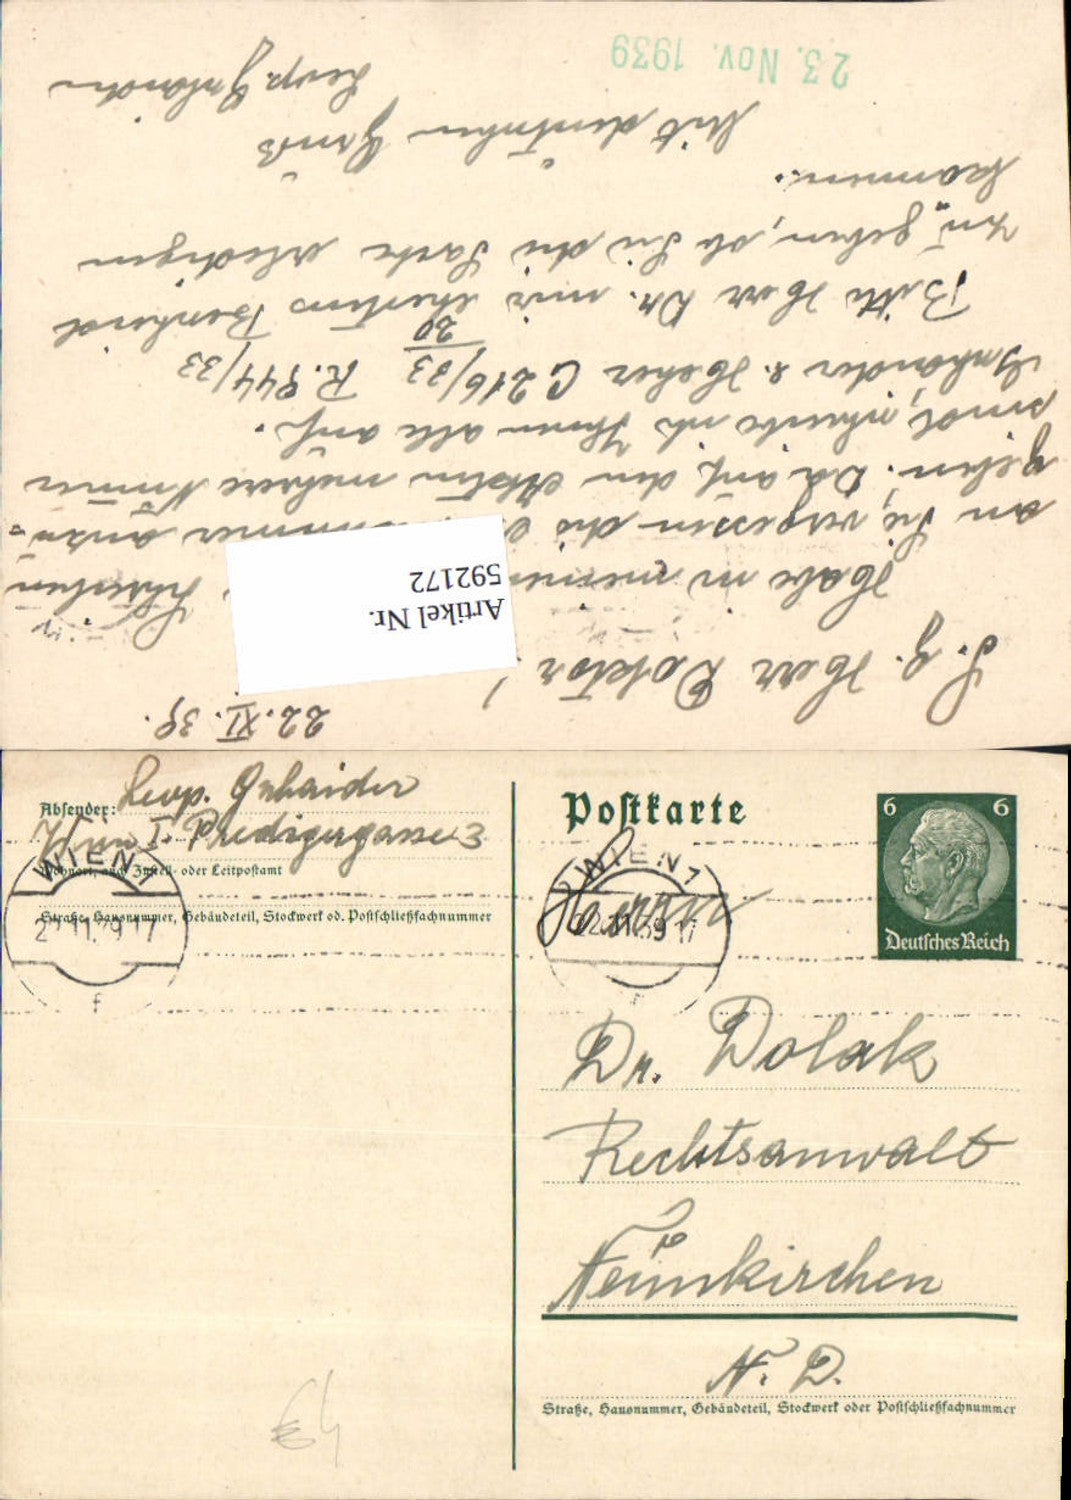 22. XI. 39.
S. g. Herr Doktor!
Habe in meinem Schreiben
an Sie, vergessen die anzu-
geben. Da auf den Akten mehrere Numer
sind, schreibe ich Ihnen alle auf.
C 216/33 R. 944/33
20
Bitte Herr Dr. mir Bescheid
zu geben, ob Sie die Sache erledigen
kommen.
Mit deutschen Gruß
Leop.
23. Nov. 1939
Artikel Nr.
592172
Absender: Leop.
Wien I. Predigergasse
Wohnort, auch Zustell- oder Leitpostamt
Straße, Hausnummer, Gebäudeteil, Stockwerk od. Postschließfachnummer
WIEN 1
22.11.39 17
f
Postkarte
WIEN 1
22.11.39 17
6 6
Deutsches Reich
Dr. Dolak
Rechtsanwalt
Neunkirchen
N. D.
Straße, Hausnummer, Gebäudeteil, Stockwerk oder Postschließfachnummer